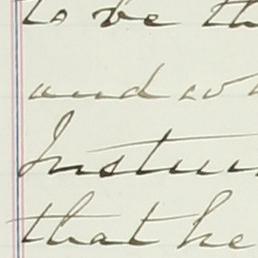 to be th
and w
Instru
that he